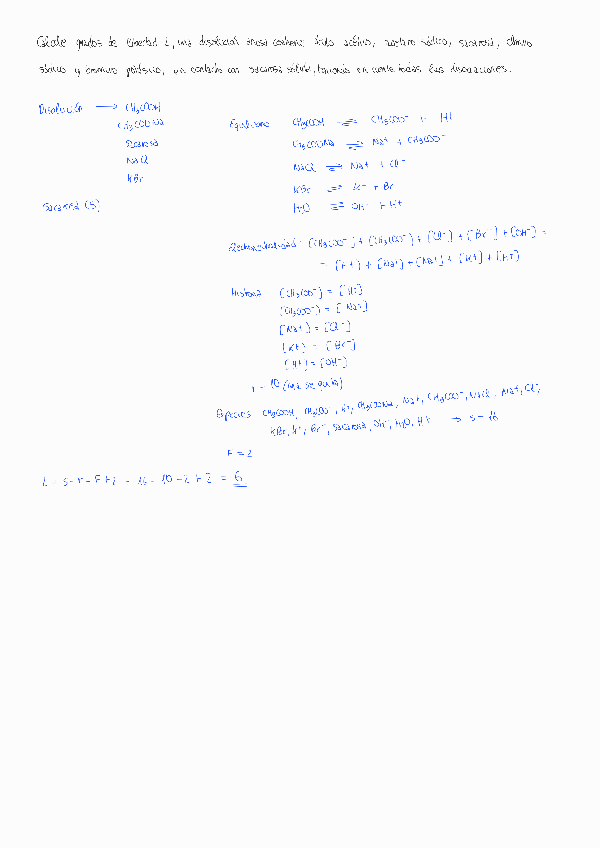 Calcule grados de libertad L, una disolución acuosa contiene ácido acético, acetato sódico, sacarosa, cloruro
sódico y bromuro potásico, en contacto con sacarosa sólida. Teniendo en cuenta todas las disociaciones.
Disolución → CH3COOH
CH3COONa
Sacarosa
NaCl
KBr
Sacarosa (S)
Equilibrios CH3COOH ⇌ CH3COO⁻ + H+
CH3COONa ⇌ Na+ + CH3COO⁻
NaCl ⇌ Na+ + Cl⁻
KBr ⇌ K+ + Br
H2O ⇌ OH⁻ + H+
Electroneutralidad: [CH3COO⁻] + [CH3COO⁻] + [Cl⁻] + [Br⁻] + [OH⁻] =
= [H+] + [Na+] + [Na+] + [K+] + [H+]
[CH3COO⁻] = [H+]
[CH3COO⁻] = [Na+]
[Na+] = [Cl⁻]
[K+] = [Br⁻]
[H+] = [OH⁻]
r = 10
Especies CH3COOH, CH3COO⁻, H+, CH3COONa, Na+, CH3COO⁻, NaCl, Na+, Cl⁻,
KBr, K+, Br⁻, Sacarosa, OH⁻, H2O, H+ → S = 16
F = 2
L = S - r - F + 2 = 16 - 10 - 2 + 2 = 6